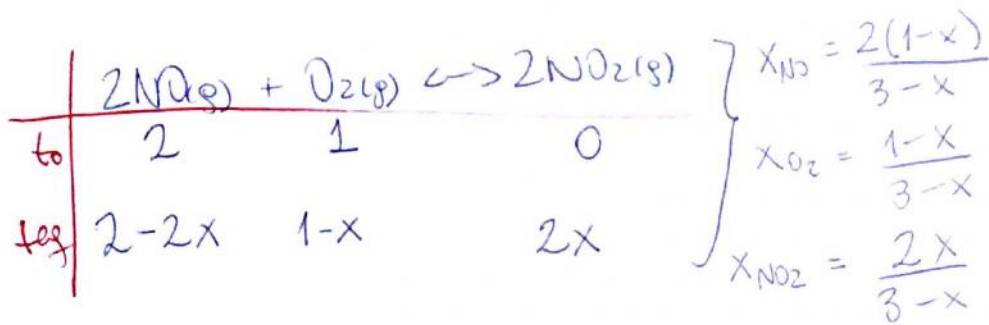 2NO(g) + O2(g) <-> 2NO2(g)
t0 2 1 0
teq 2-2x 1-x 2x
xNO = 2(1-x)/3-x
xO2 = 1-x/3-x
xNO2 = 2x/3-x